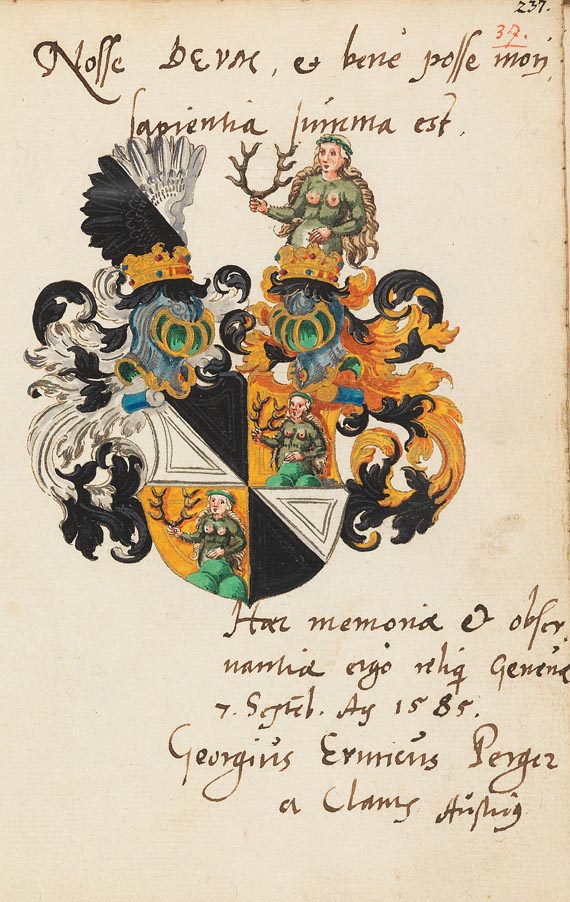 237.
37.
Nosse DEVM, et bene posse mori,
sapientia summa est.
Haec memoriae et obser-
vantiae ergo reliq Genevae
7. Septeb. Ao 1585.
Georgius Ernricus Perger
a Clams Austrius